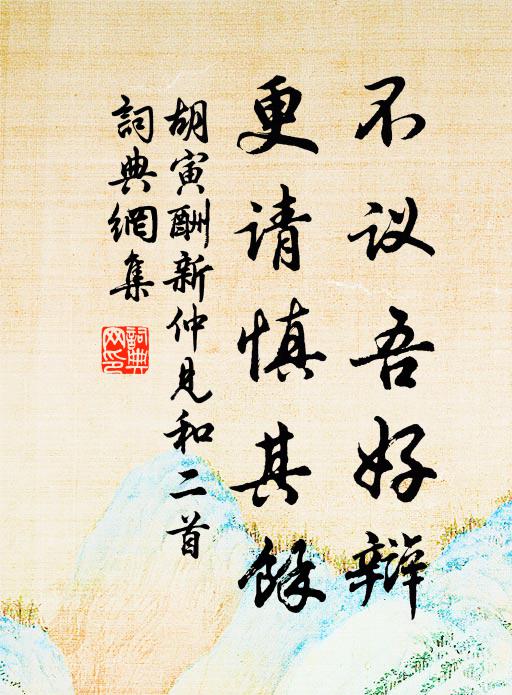 不议吾好辩
更请慎其馀
胡寅酬新仲见和二首
詞典網集
詞典
网印